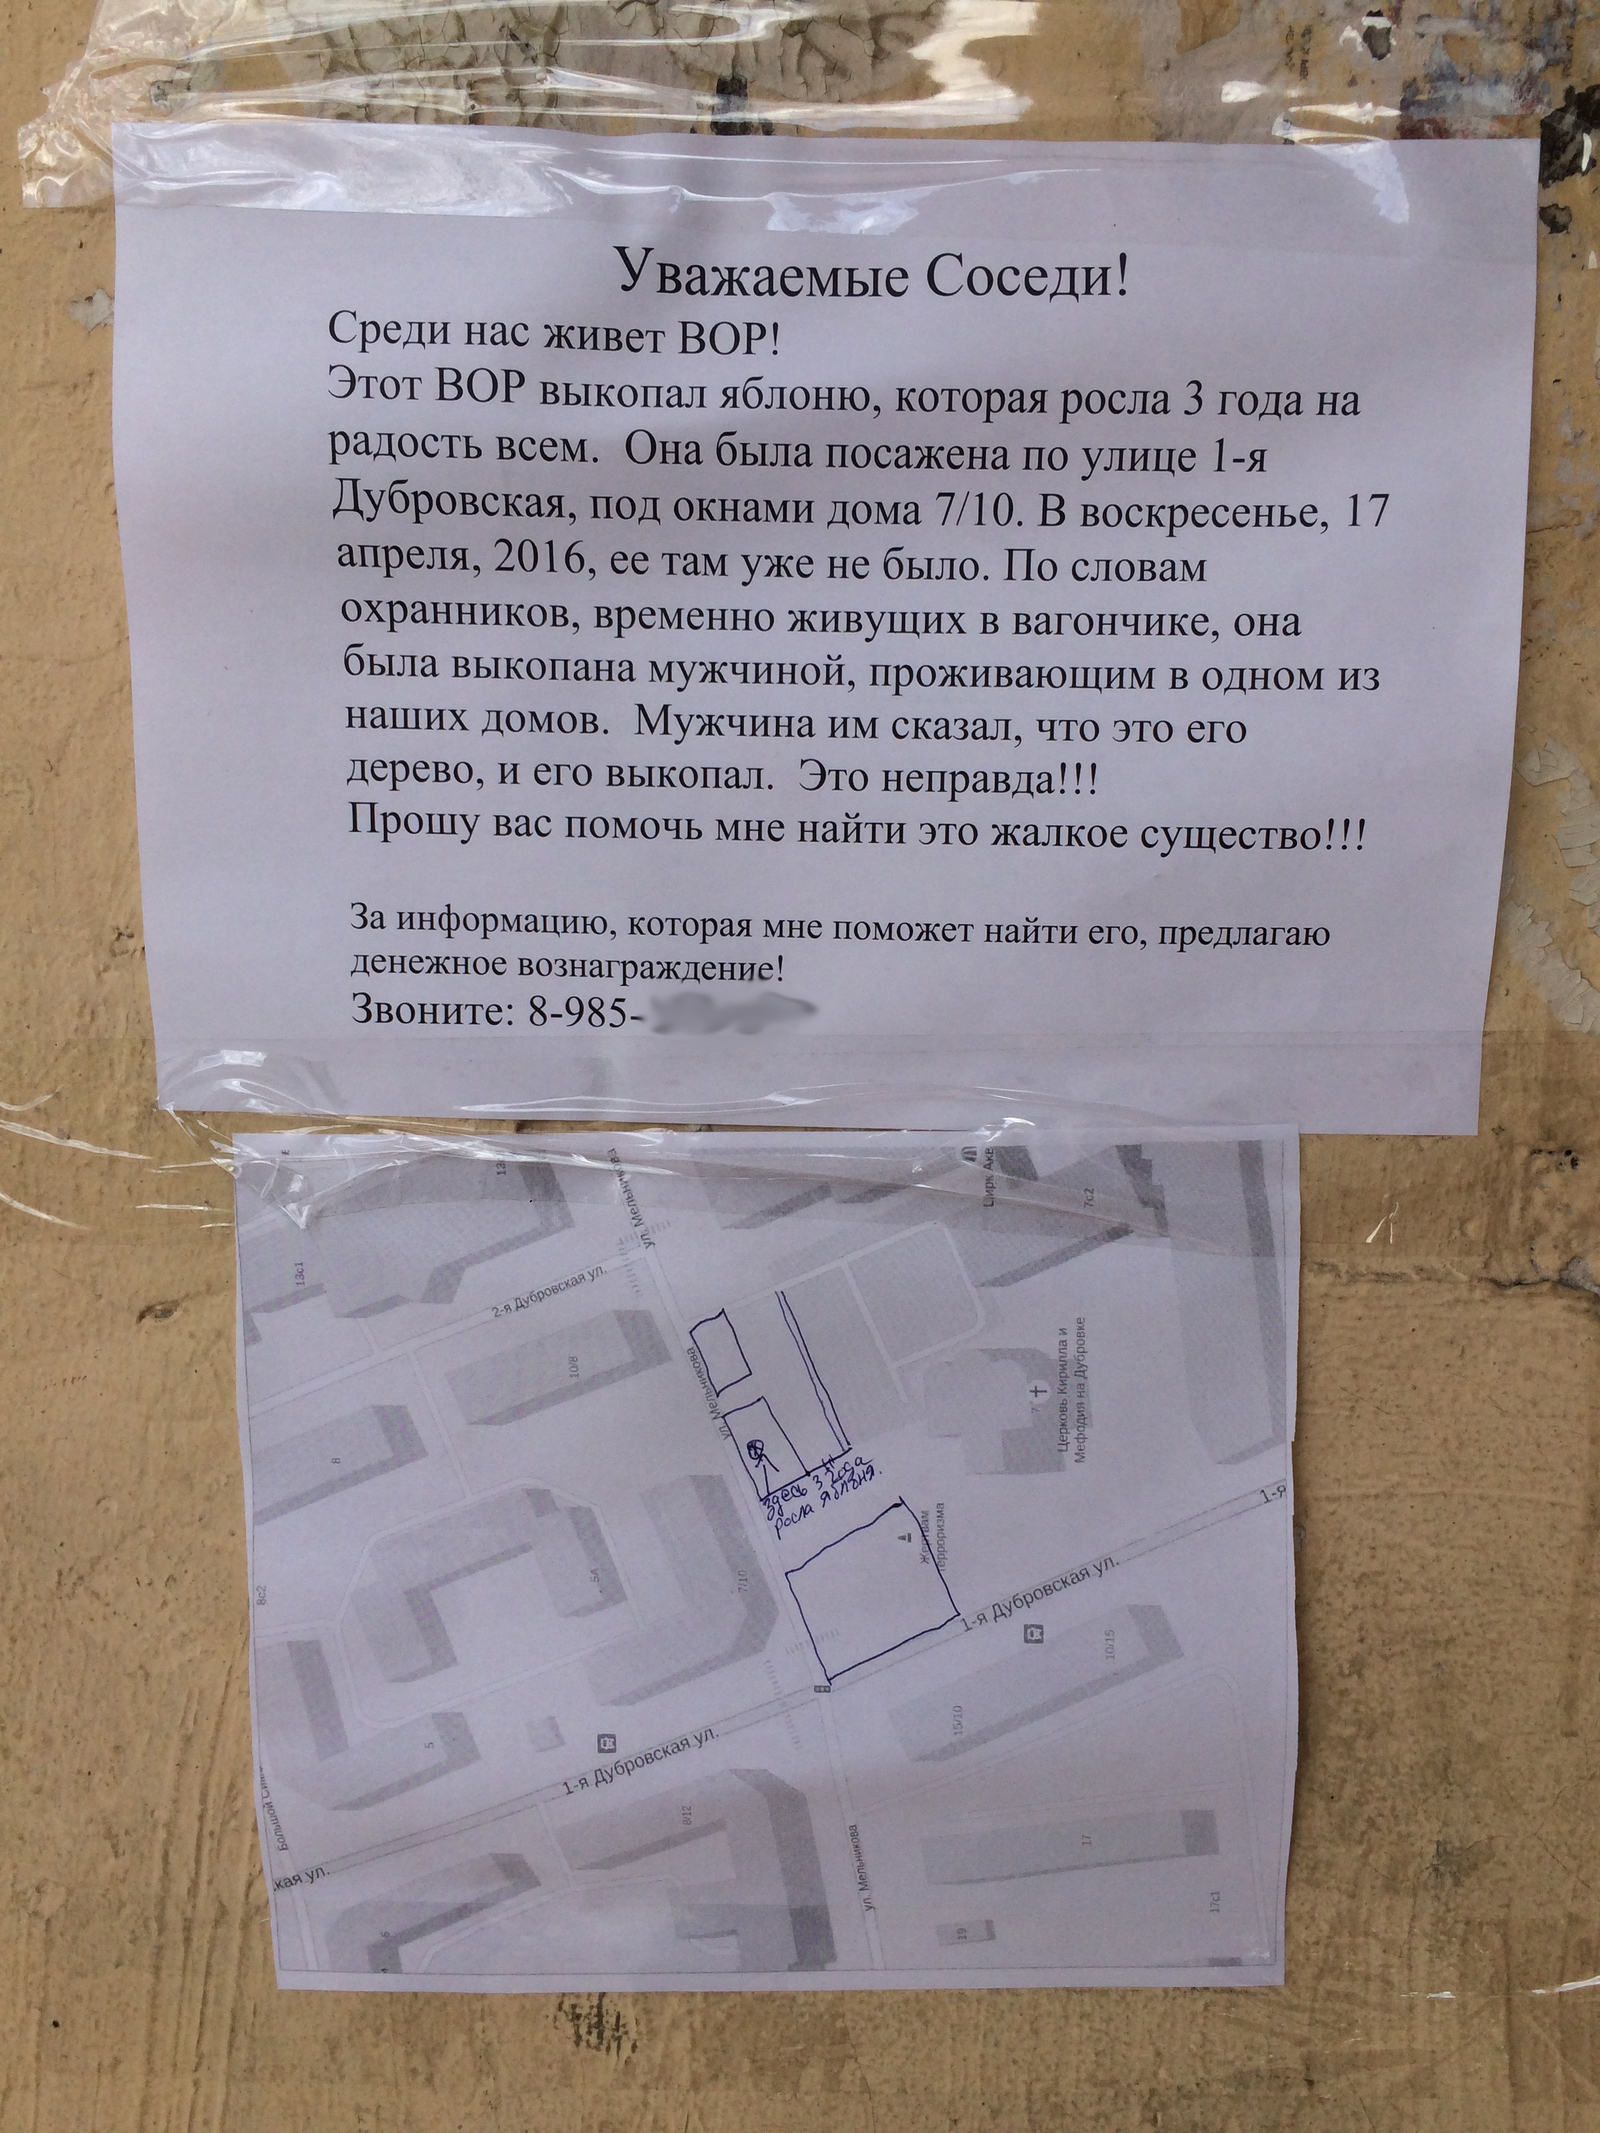 Уважаемые Соседи!
Среди нас живет ВОР!
Этот ВОР выкопал яблоню, которая росла 3 года на
радость всем. Она была посажена по улице 1-я
Дубровская, под окнами дома 7/10. В воскресенье, 17
апреля, 2016, ее там уже не было. По словам
охранников, временно живущих в вагончике, она
была выкопана мужчиной, проживающим в одном из
наших домов. Мужчина им сказал, что это его
дерево, и его выкопал. Это неправда!!!
Прошу вас помочь мне найти это жалкое существо!!!
За информацию, которая мне поможет найти его, предлагаю
денежное вознаграждение!
Звоните: 8-985-
ул. Мельникова
7с2
13с1
2-я Дубровская ул.
10/8
ул. Мельникова
Церковь Кирилла и
Мефодия на Дубровке
7
8
Здесь 3 года
росла яблоня.
Жертвам
терроризма
1-я
8с2
5А
7/10
1-я Дубровская ул.
10/15
15/10
5
1-я Дубровская ул.
8/12
ул. Мельникова
17
кая ул.
6
19
17с1